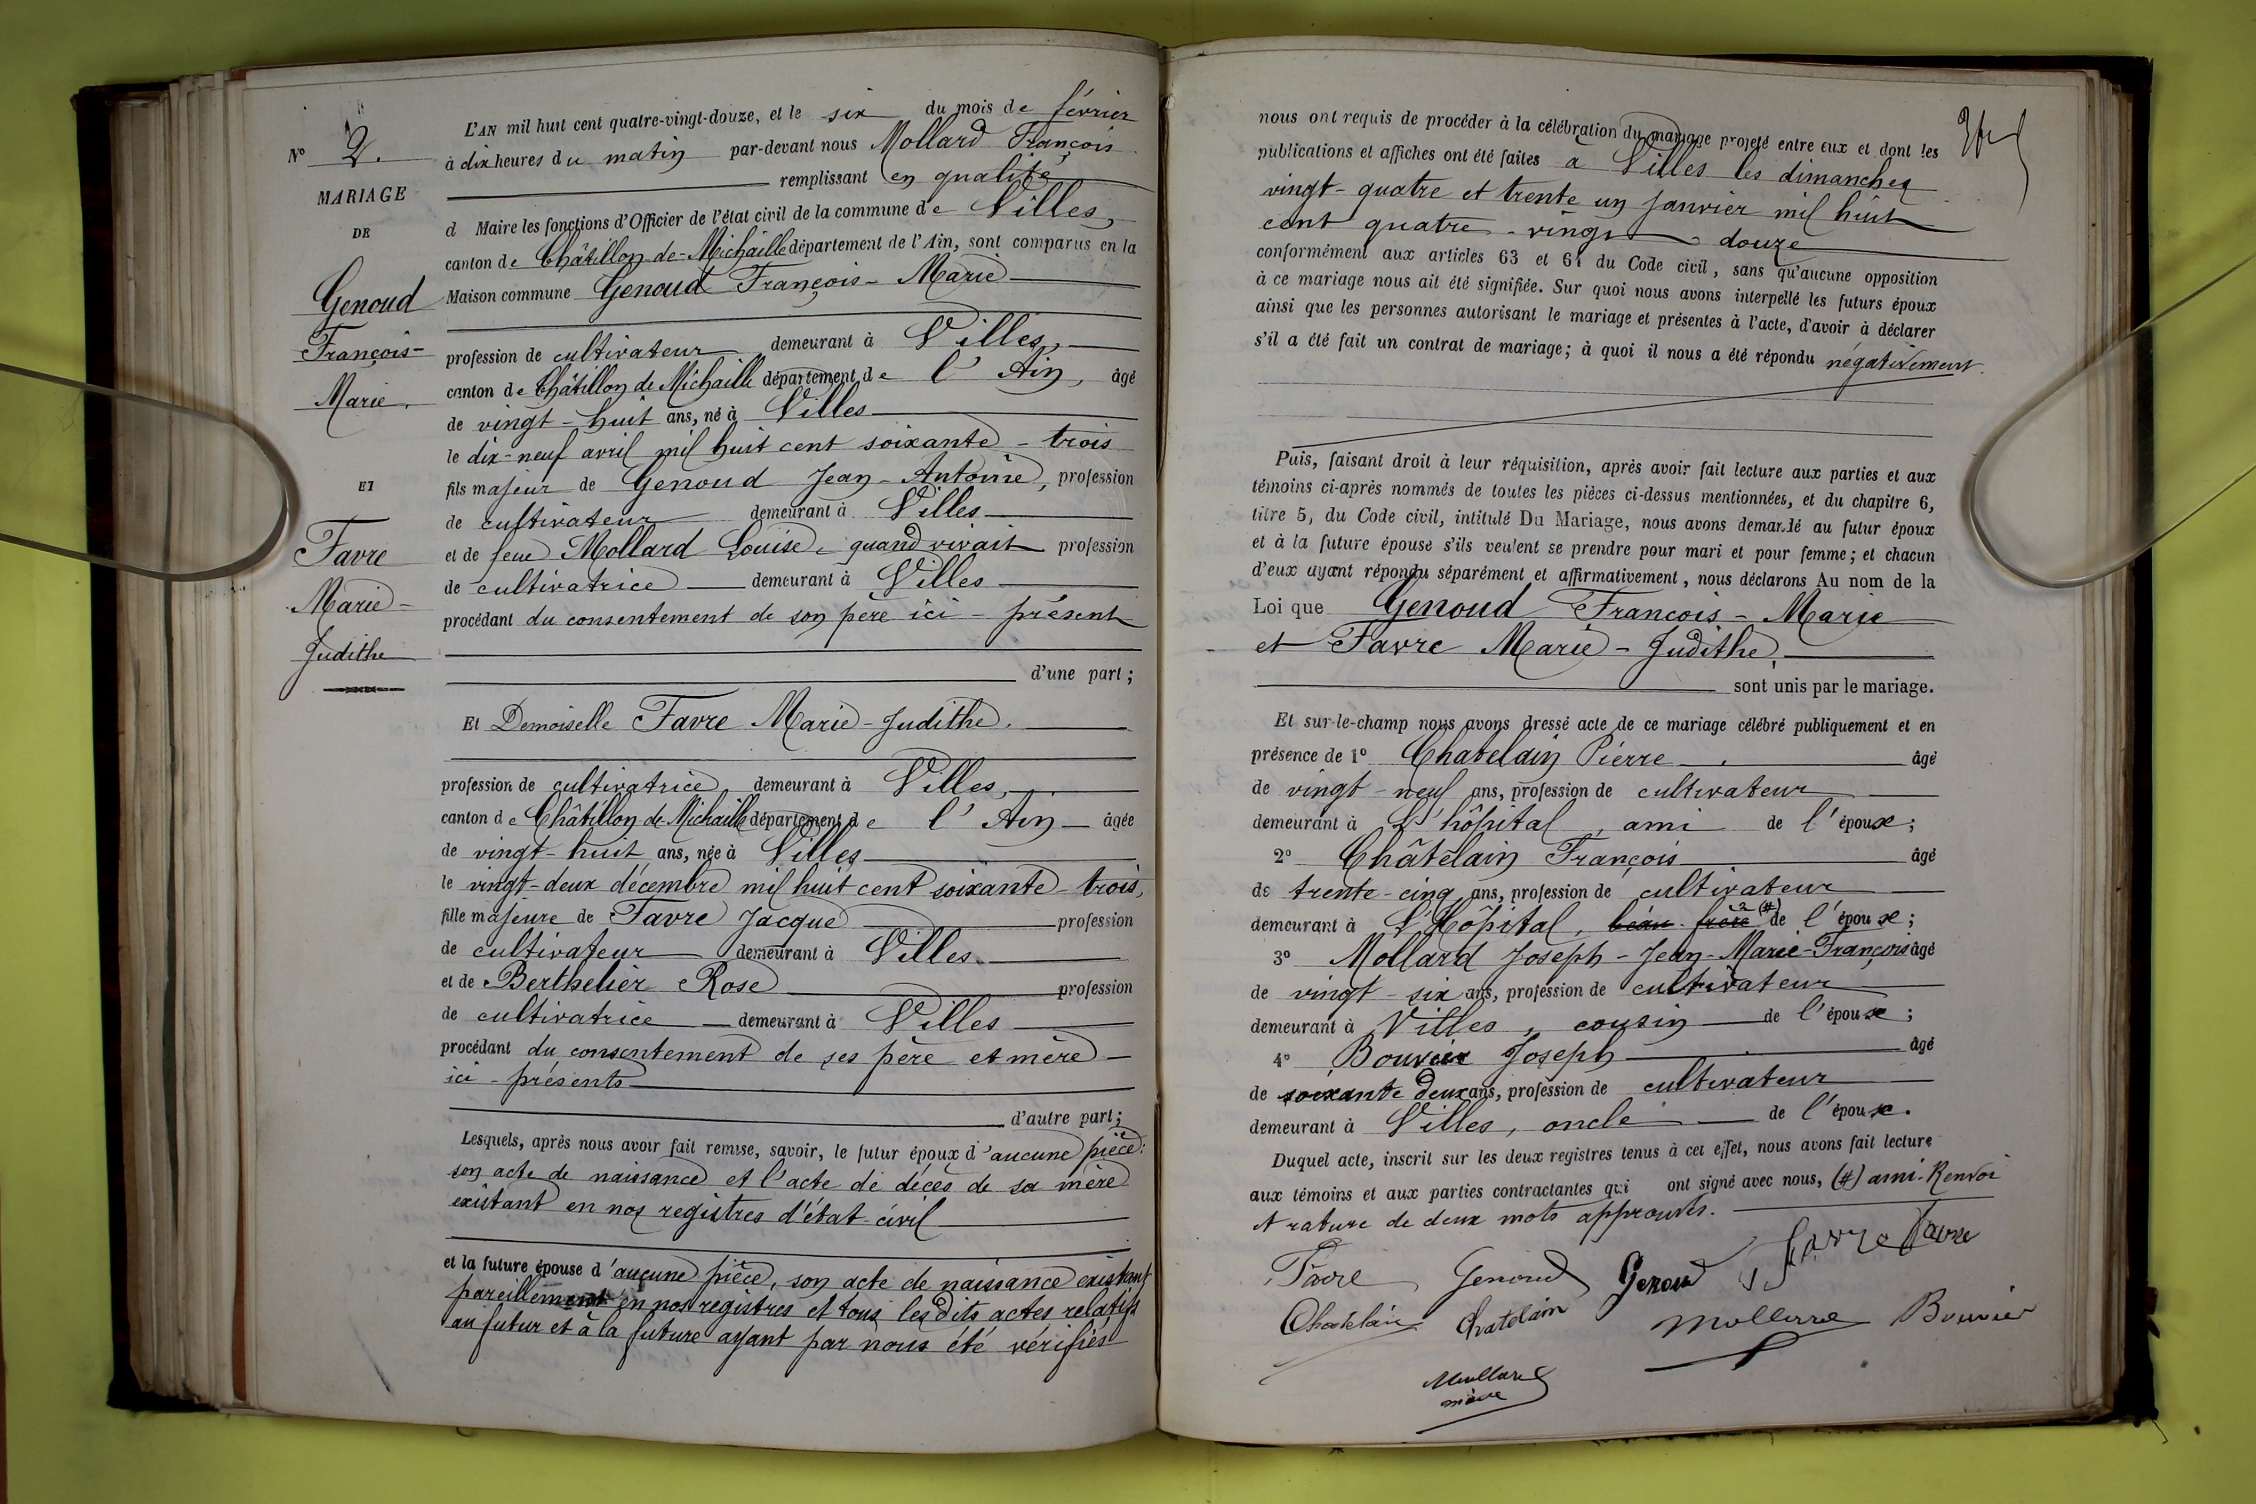 N° 2.
MARIAGE
DE
Genoud
François-
Marie.
ET
Favre
Marie-
Judithe
L'AN mil huit cent quatre-vingt-douze, et le six du mois de février
à dix heures du matin par-devant nous Mollard François
remplissant en qualité
d Maire les fonctions d'Officier de l'état civil de la commune de Villes,
canton de Châtillon-de-Michaille département de l'Ain, sont comparus en la
Maison commune Genoud François-Marie
profession de cultivateur demeurant à Villes,
canton de Châtillon de Michaille département de l'Ain, âgé
de vingt-huit ans, né à Villes
le dix-neuf avril mil huit cent soixante-trois
fils majeur de Genoud Jean-Antoine, profession
de cultivateur demeurant à Villes
et de feue Mollard Louise, quand vivait profession
de cultivatrice demeurant à Villes
procédant du consentement de son père ici-présent
d'une part;
Et Demoiselle Favre Marie-Judithe.
profession de cultivatrice demeurant à Villes,
canton de Châtillon de Michaille département de l'Ain âgée
de vingt-huit ans, née à Villes
le vingt-deux décembre mil huit cent soixante-trois,
fille majeure de Favre Jacque profession
de cultivateur demeurant à Villes
et de Berthelier Rose profession
de cultivatrice demeurant à Villes
procédant du consentement de ses père et mère
ici-présents
d'autre part;
Lesquels, après nous avoir fait remise, savoir, le futur époux d'aucune pièce:
son acte de naissance et l'acte de décès de sa mère
existant en nos registres d'état-civil
et la future épouse d'aucune pièce, son acte de naissance existant
pareillement en nos registres et tous les dits actes relatifs
au futur et à la future ayant par nous été vérifiés
nous ont requis de procéder à la célébration du mariage projeté entre eux et dont les
publications et affiches ont été faites à Villes les dimanches
vingt-quatre et trente un janvier mil huit
cent quatre-vingt douze
conformément aux articles 63 et 64 du Code civil, sans qu'aucune opposition
à ce mariage nous ait été signifiée. Sur quoi nous avons interpellé les futurs époux
ainsi que les personnes autorisant le mariage et présentes à l'acte, d'avoir à déclarer
s'il a été fait un contrat de mariage; à quoi il nous a été répondu négativement.
Puis, faisant droit à leur réquisition, après avoir fait lecture aux parties et aux
témoins ci-après nommés de toutes les pièces ci-dessus mentionnées, et du chapitre 6,
titre 5, du Code civil, intitulé Du Mariage, nous avons demandé au futur époux
et à la future épouse s'ils veulent se prendre pour mari et pour femme; et chacun
d'eux ayant répondu séparément et affirmativement, nous déclarons Au nom de la
Loi que Genoud François-Marie
et Favre Marie-Judithe,
sont unis par le mariage.
Et sur-le-champ nous avons dressé acte de ce mariage célébré publiquement et en
présence de 1° Chatelain Pierre âgé
de vingt-neuf ans, profession de cultivateur
demeurant à L'hôpital, ami de l'épouse;
2° Châtelain François âgé
de trente-cinq ans, profession de cultivateur
demeurant à L'Hôpital, beau-frère (#) de l'épouse;
3° Mollard Joseph-Jean-Marie-François âgé
de vingt-six ans, profession de cultivateur
demeurant à Villes, cousin de l'épouse;
4° Bouvier Joseph âgé
de soixante deux ans, profession de cultivateur
demeurant à Villes, oncle de l'épouse.
Duquel acte, inscrit sur les deux registres tenus à cet effet, nous avons fait lecture
aux témoins et aux parties contractantes qui ont signé avec nous, (#) ami. Renvoi
et rature de deux mots approuvés.
Favre Genoud Genoud Favre Favre
Chatelain Chatelain Mollard Bouvier
Mollard
maire